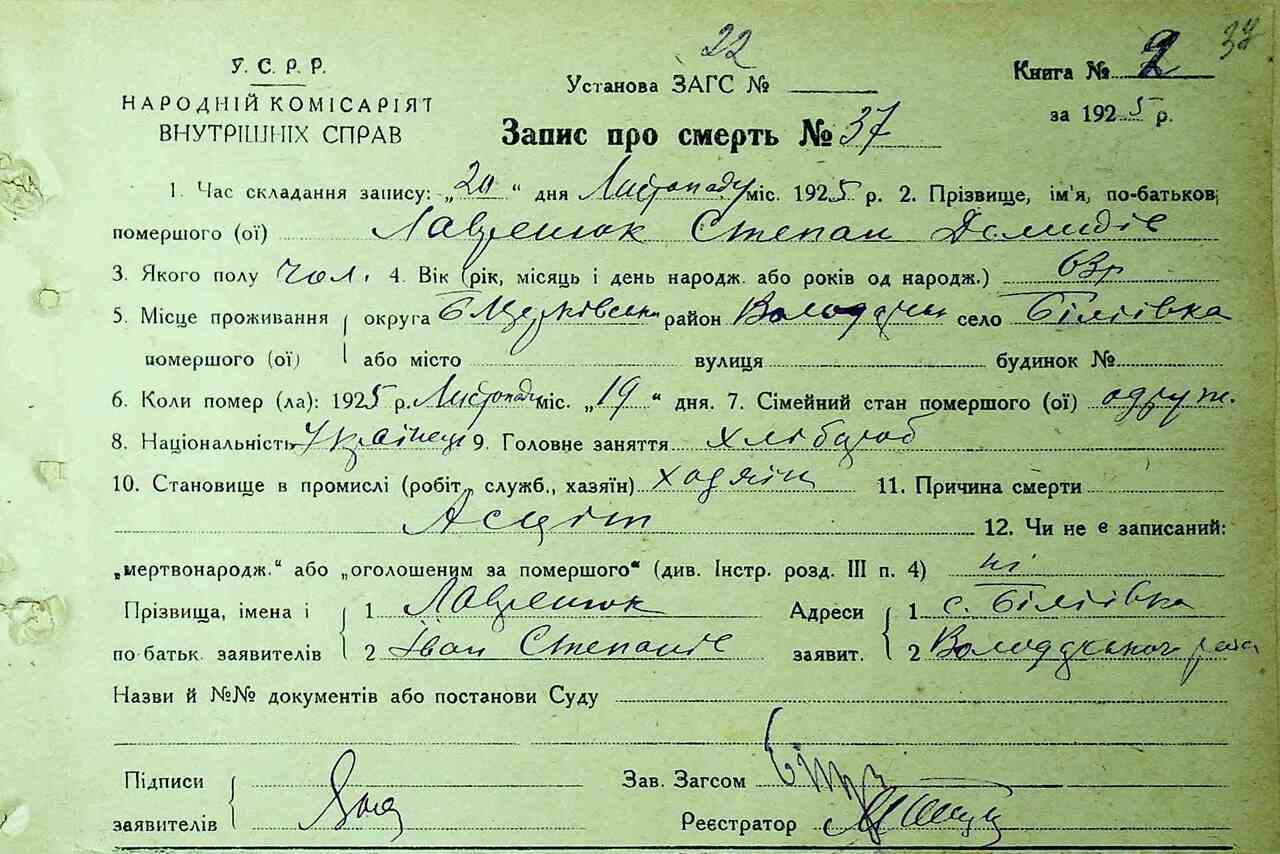 22 37
У.С.Р.Р. Установа ЗАГС № Книга № 2
НАРОДНІЙ КОМІСАРІЯТ за 1925 р.
ВНУТРІШНІХ СПРАВ Запис про смерть № 37
1. Час складання запису: „20“ дня Листопаду міс. 1925 р. 2. Прізвище, ім'я, по-батьков,
помершого (ої) Лавренюк Степан Демидів
3. Якого полу чол. 4. Вік (рік, місяць і день народж. або років од народж.) 63р
5. Місце проживання округа БЦерківськ район Володарськ село Біліївка
помершого (ої) або місто вулиця будинок №
6. Коли помер (ла): 1925 р. Листопаду міс. „19“ дня. 7. Сімейний стан помершого (ої) одруж.
8. Національність Українец 9. Головне заняття хлібороб
10. Становище в промислі (робіт., служб., хазяїн) ходяїн 11. Причина смерти
Асціт 12. Чи не є записаний:
„мертвонародж.“ або „оголошеним за помершого“ (див. Інстр. розд. III п. 4) ні
Прізвища, імена і 1 Лавренюк Адреси 1 с. Біліївка
по батьк. заявителів 2 Іван Степанів заявит. 2 Володарського рана
Назви й №№ документів або постанови Суду
Підписи Зав. Загсом
заявителів Реєстратор